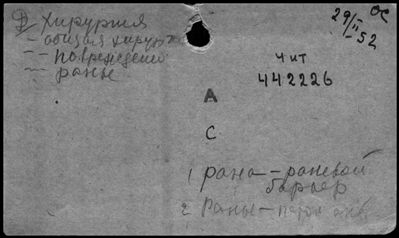 хирургия
- общая хирург
- повреждени
- раны
29/II 52
ОС
Чит
442226
А
С
1 рана - раневой
барьер
2 Раны -